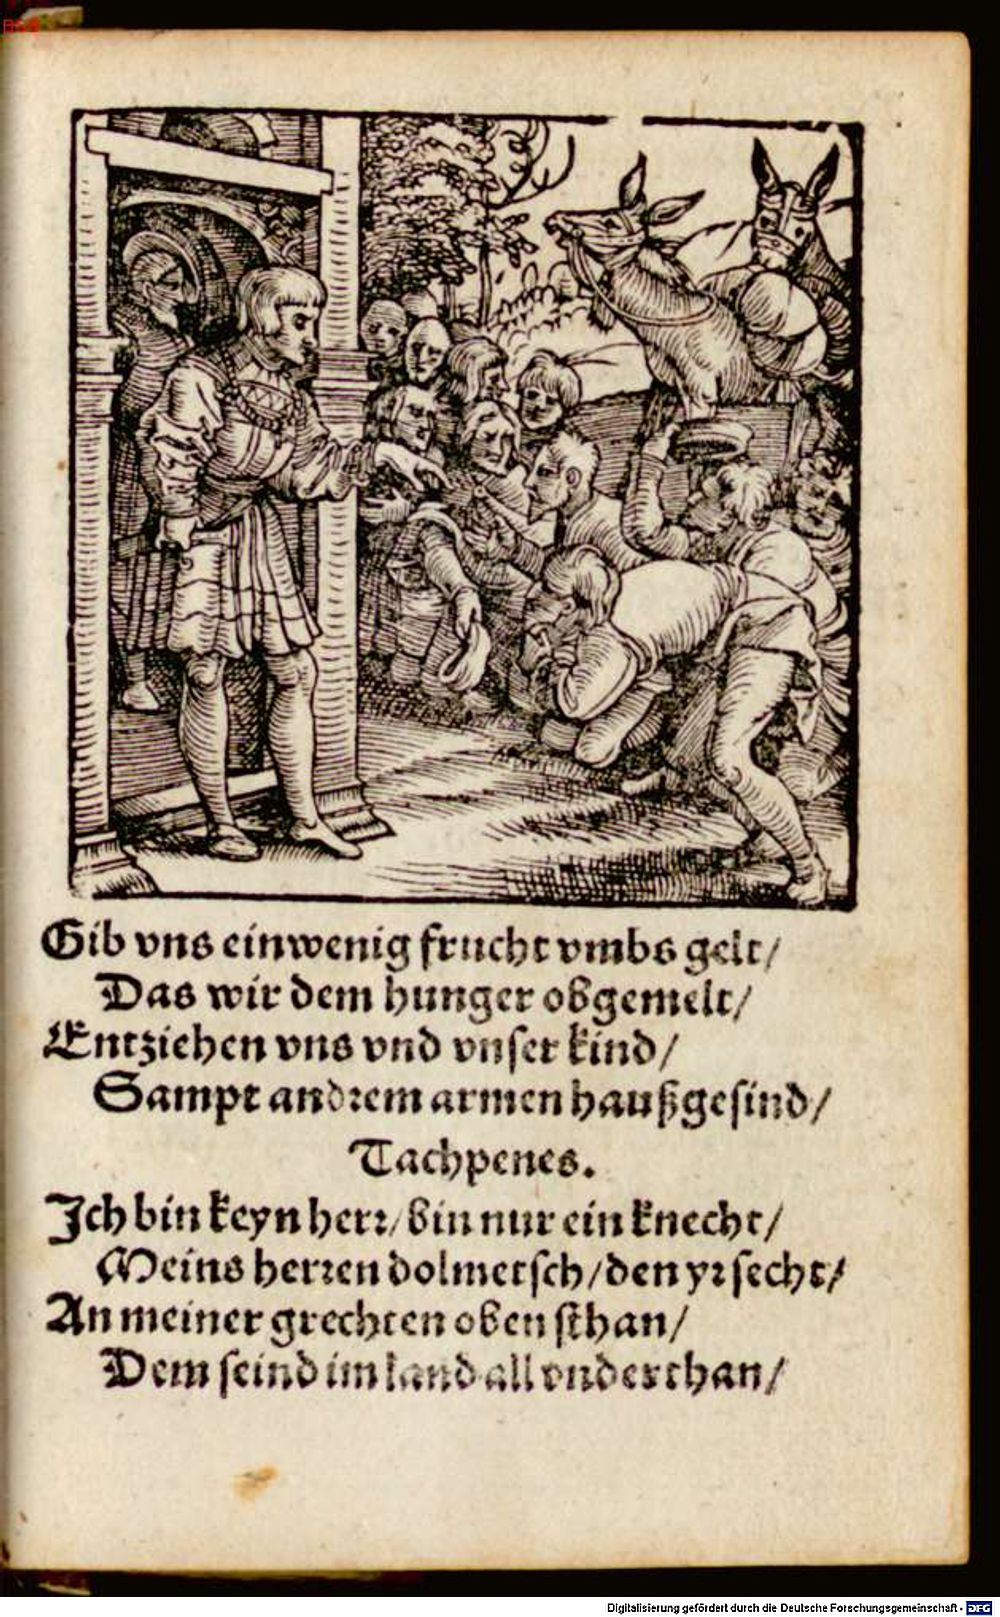 BSB
Gib vns einwenig frucht vmbs gelt/
Das wir dem hunger obgemelt/
Entziehen vns vnd vnser kind/
Sampt andrem armen haußgesind/
Tachpenes.
Jch bin keyn herr/ bin nur ein knecht/
Meins herren dolmetsch/ den yr secht/
An meiner grechten oben sthan/
Dem seind im land all vnderthan/
Digitalisierung gefördert durch die Deutsche Forschungsgemeinschaft - DFG